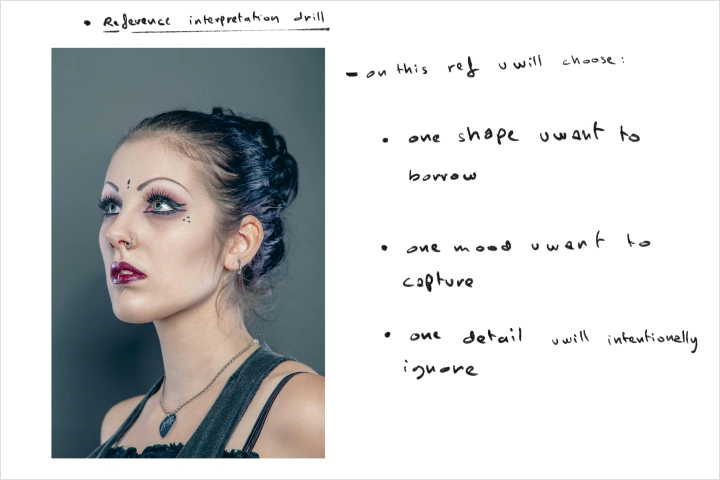 • Reference interpretation drill
- on this ref u will choose:
• one shape u want to
borrow
• one mood u want to
capture
• one detail u will intentionelly
ignore